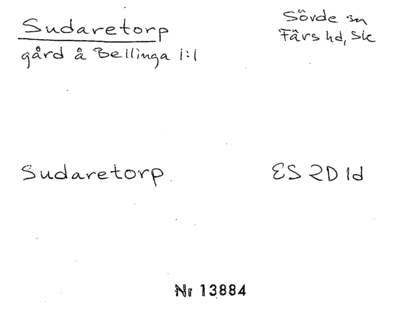 Sudaretorp
gård å Bellinga 1:1
Sövde sn
Färs hd, Sk
Sudaretorp.
ES 2D 1d
Nr 13884